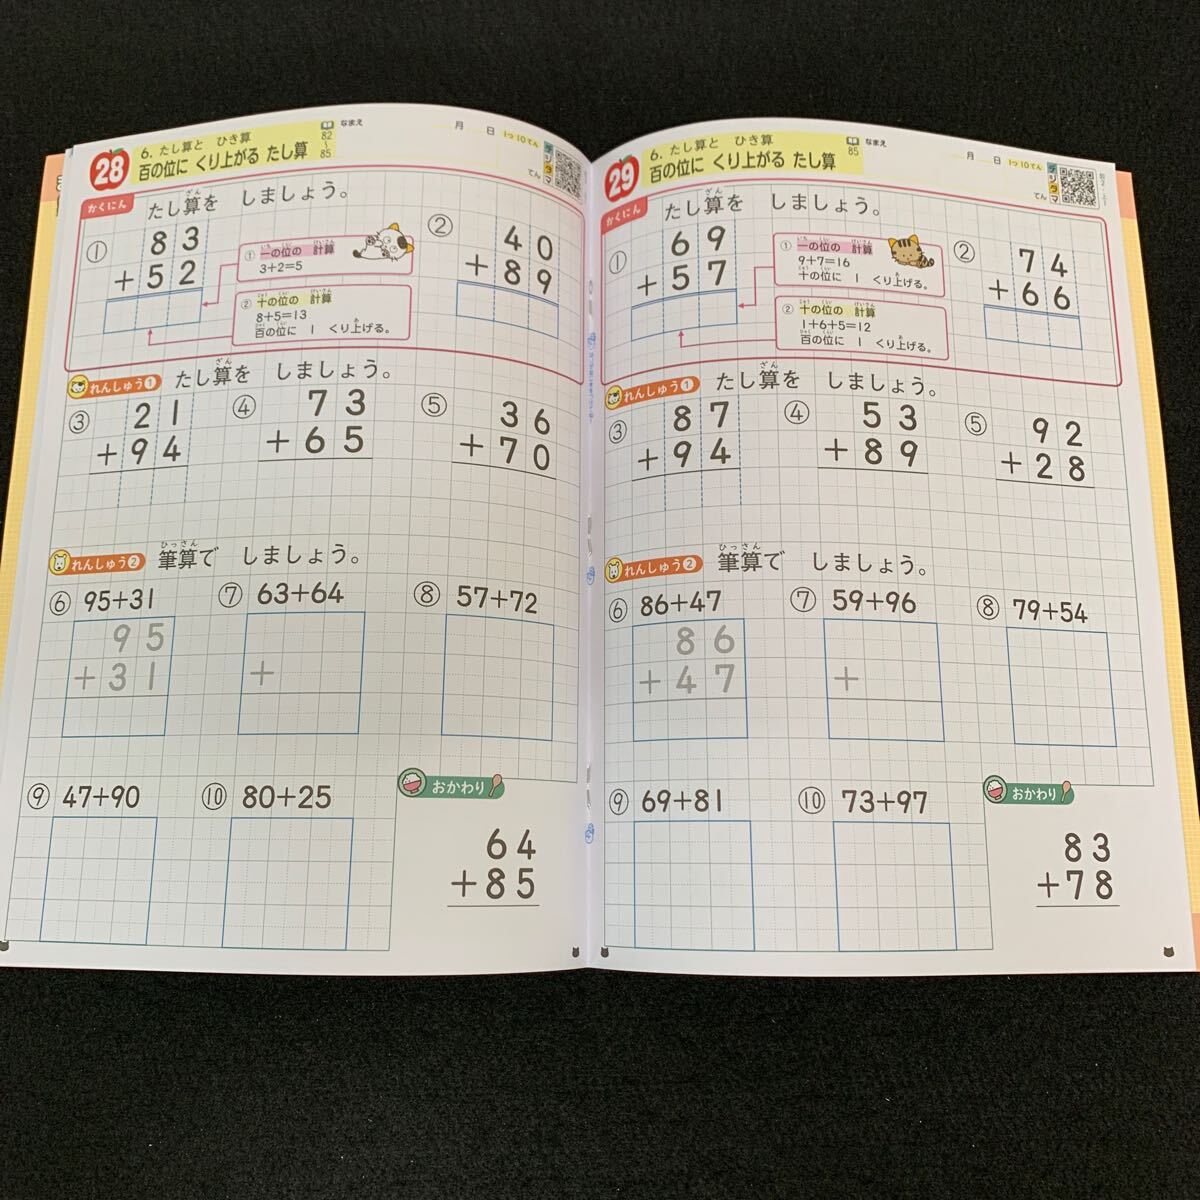 28
6. たし算と ひき算
百の位に くり上がる たし算
教科書
82
~
85
なまえ
月 日
1つ10てん
てん
デジタマ
かくにん
たし算を しましょう。
ざん
① 83
+52
① 一の位の 計算
3+2=5
② 十の位の 計算
8+5=13
百の位に 1 くり上げる。
② 40
+89
れんしゅう1
たし算を しましょう。
ざん
③ 21
+94
④ 73
+65
⑤ 36
+70
れんしゅう2
筆算で しましょう。
ひっさん
⑥ 95+31
95
+31
⑦ 63+64
+
⑧ 57+72
⑨ 47+90
⑩ 80+25
おかわり
64
+85
29
6. たし算と ひき算
百の位に くり上がる たし算
85
なまえ
月 日
1つ10てん
てん
デジタマ
かくにん
たし算を しましょう。
ざん
① 69
+57
① 一の位の 計算
9+7=16
十の位に 1 くり上げる。
② 十の位の 計算
1+6+5=12
百の位に 1 くり上げる。
② 74
+66
れんしゅう1
たし算を しましょう。
ざん
③ 87
+94
④ 53
+89
⑤ 92
+28
れんしゅう2
筆算で しましょう。
ひっさん
⑥ 86+47
86
+47
⑦ 59+96
+
⑧ 79+54
⑨ 69+81
⑩ 73+97
おかわり
83
+78